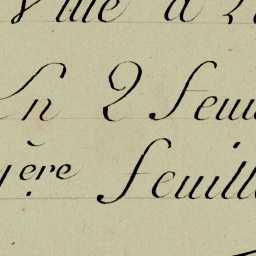 Ville d
En 2 feui
1ère feuill